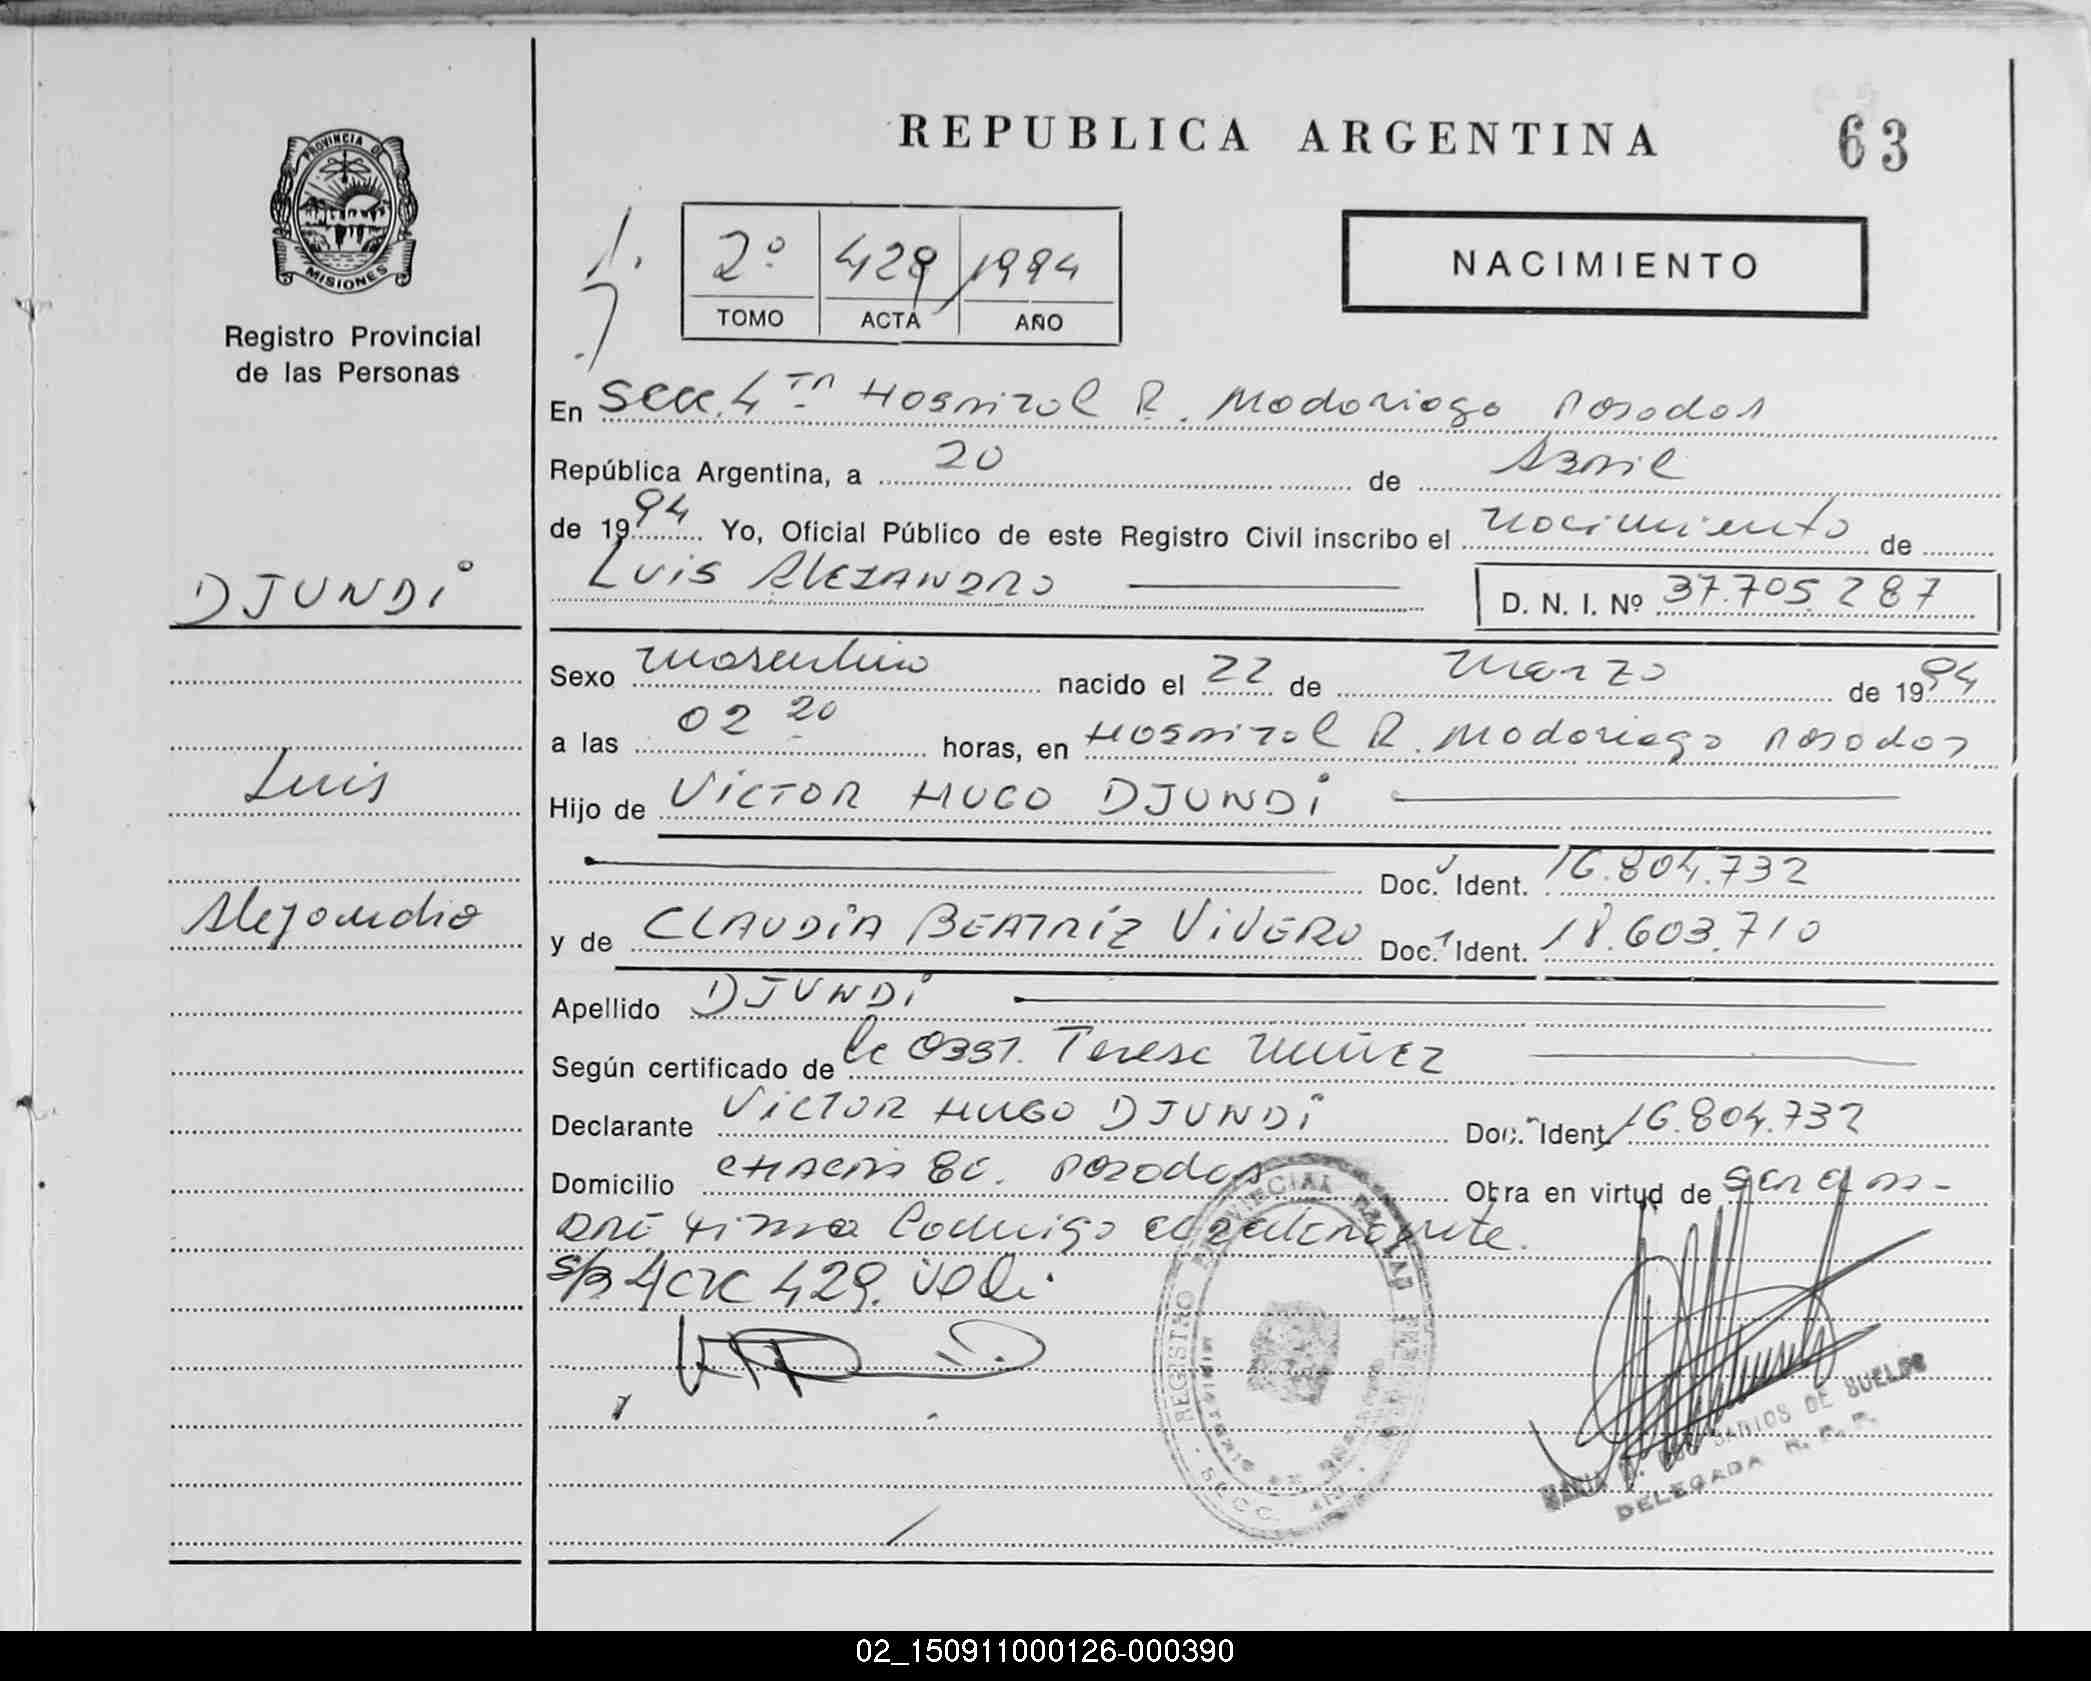 REPUBLICA ARGENTINA
63
PROVINCIA DE
MISIONES
Registro Provincial
de las Personas
2º 429 1994
TOMO ACTA AÑO
NACIMIENTO
En Secc. 4ta Hospital R. Madariaga Posadas
República Argentina, a 20 de Abril
de 1994 Yo, Oficial Público de este Registro Civil inscribo el nacimiento de
Luis Alejandro D. N. I. Nº 37.705.287
DJUNDi
Sexo masculino nacido el 22 de marzo de 1994
a las 02 20 horas, en Hospital R. Madariaga Posadas
Luis
Hijo de VicTOR HUGO DJUNDi
Doc. Ident. 16.804.732
Alejandro
y de CLAUDiA BEATRiz ViVERO Doc. Ident. 18.603.710
Apellido DJUNDi
Según certificado de la Obst. Teresa Nuñez
Declarante VicTOR HUGO DJUNDi Doc. Ident. 16.804.732
Domicilio 86. Posadas Obra en virtud de ser el pa-
dre firma conmigo
s/b Acta 429. Vale.
REGISTRO PROVINCIAL
SECC.
MARIA DE SUELDO
DELEGADA R. P. P.
02_150911000126-000390